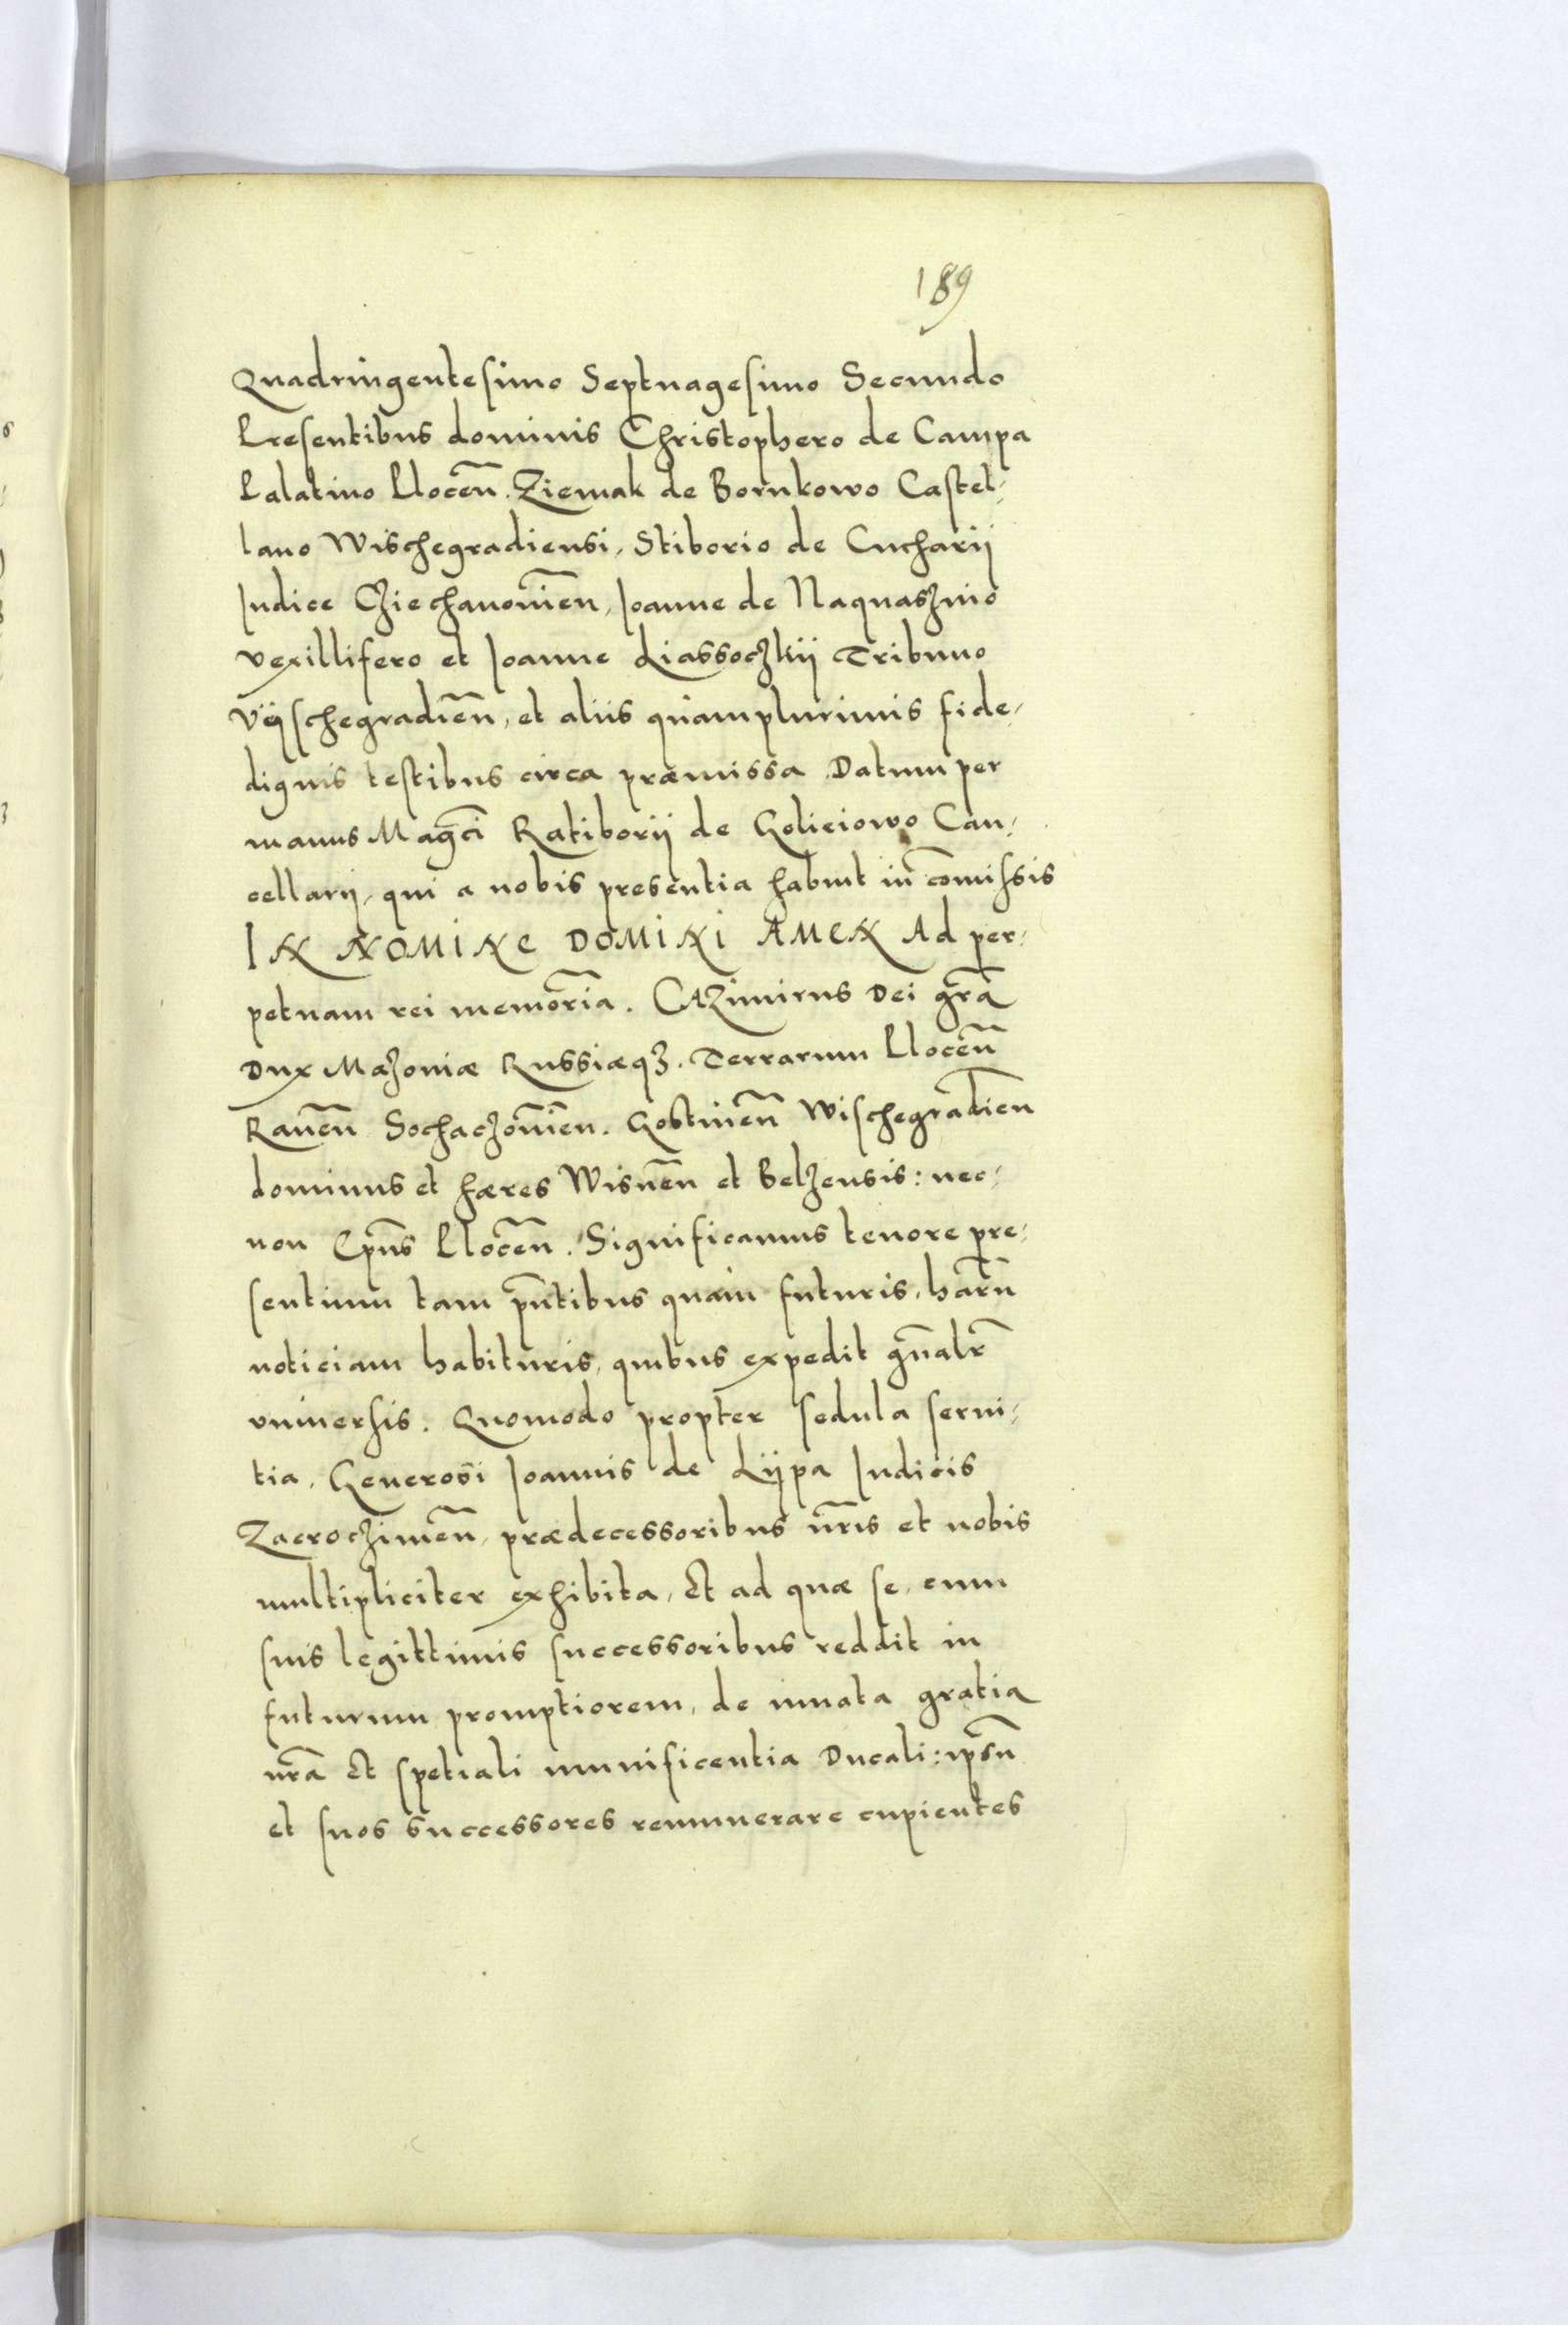 189
Quadringentesimo Septuagesimo Secundo
Presentibus dominis Christophero de Campa
Palatino Plocen̄. Ziemak de Bornkowo Castel-
lano Wischegradiensi, Stiborio de Cucharij
Iudice Cziechanouien̄, Ioanne de Naquasznio
vexillifero et Ioanne Liassoczkij Tribuno
Vijschegradien̄, et aliis quamplurimis fide-
dignis testibus circa præmissa Datum per
manus Magc̄i Ratiborij de Goliciowo Can-
cellarij, qui a nobis presentia habuit in com̄issis
IN NOMINE DOMINI AMEN Ad per-
petuam rei memor̄ia. CAZimirus Dei gr̄a
Dux Mazoniæ Russiæqȝ. Terrarum Plocen̄
Rauen̄ Sochaczouien̄. Gostinen̄ Wischegradien̄
dominus et hæres Wisnen̄ et Belzensis: nec-
non Ep̄us Plocen̄. Significamus tenore pre-
sentium tam pn̄tibus quam futuris, har̄u
noticiam habituris, quibus expedit gn̄alr̄
vniuersis. Quomodo propter sedula serui-
tia, Generosi Ioannis de Lijpa Iudicis
Zacroczimen̄, prædecessoribus nr̄is et nobis
multipliciter exhibita, Et ad quæ se, cum
suis legittimis successoribus reddit in
futurum promptiorem, de innata gratia
nr̄a Et spetiali munificentia Ducali: ip̄su
et suos successores remunerare cupientes